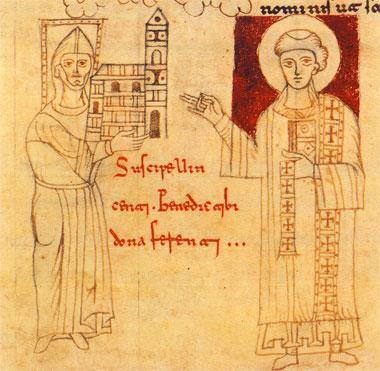 nominis ut
Suscipe Uin
centi. Benedic tibi
dona ferenti ...